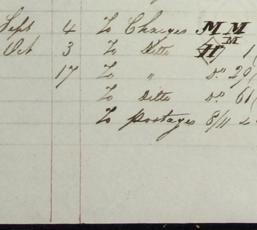 Sept 4 To Charges M M
M
Oct 3 To Ditto H
17 To " Do 29
To ditto Do 61
To Postages 8/11